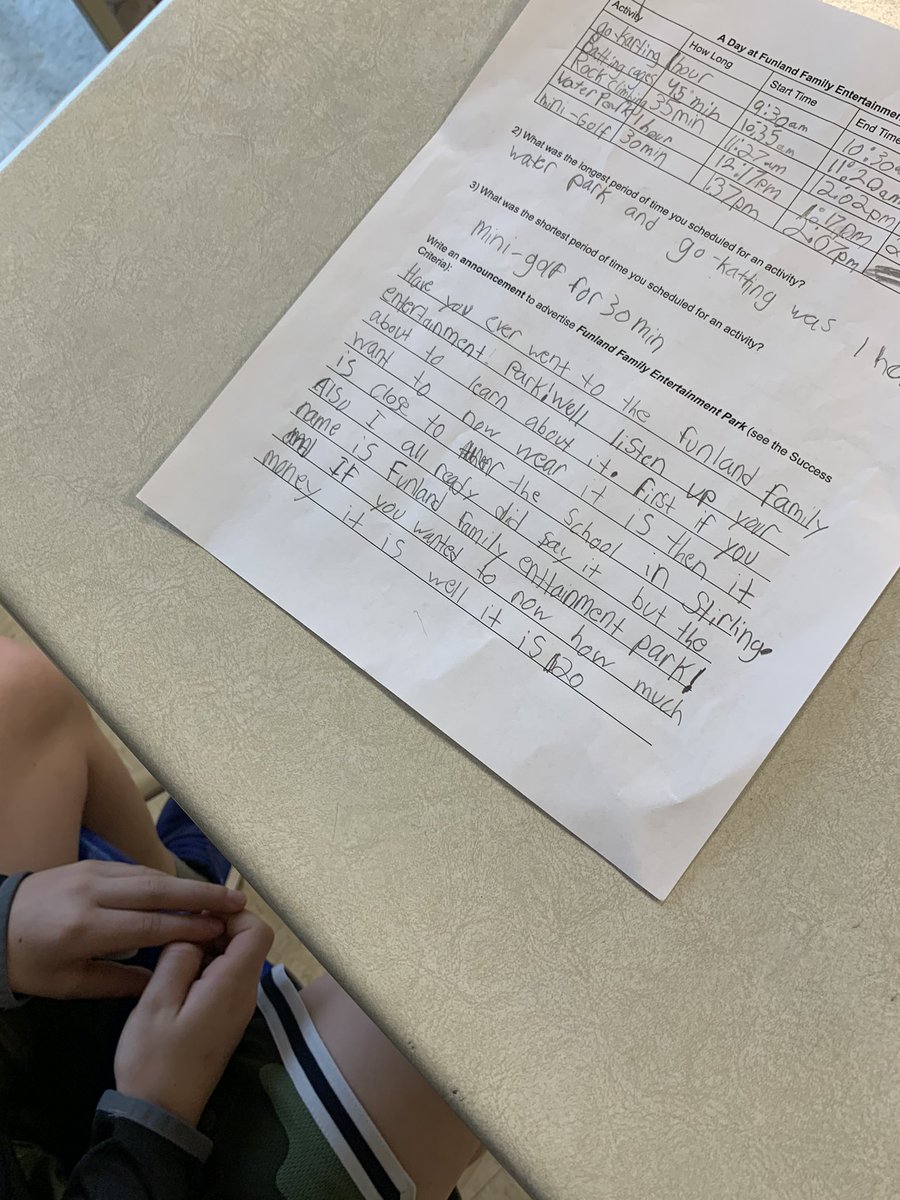 A Day at Funland Family Entertainment
Activity How Long Start Time End Time
go-karting 1hour 9:30am 10:30a
Batting cages 45 min 10:35am 11:20am
Rock climbing 35min 11:27am 12:02pm
Water Park 1hour 12:17pm 1:17pm
mini-Golf 30min 1:37pm 2:07pm
2) What was the longest period of time you scheduled for an activity?
water park and go-katting was 1 ho
3) What was the shortest period of time you scheduled for an activity?
mini-golf for 30min
Write an announcement to advertise Funland Family Entertainment Park (see the Success
Criteria):
Have you ever went to the funland family
entertainment Park! Well listen up your
about to learn about it. First if you
want to now wear it is then it
is close to the school in Stirling.
Also I all ready did say it but the
name is Funland family enttainment park!
If you wanted to now how much
maney it is well it is 20